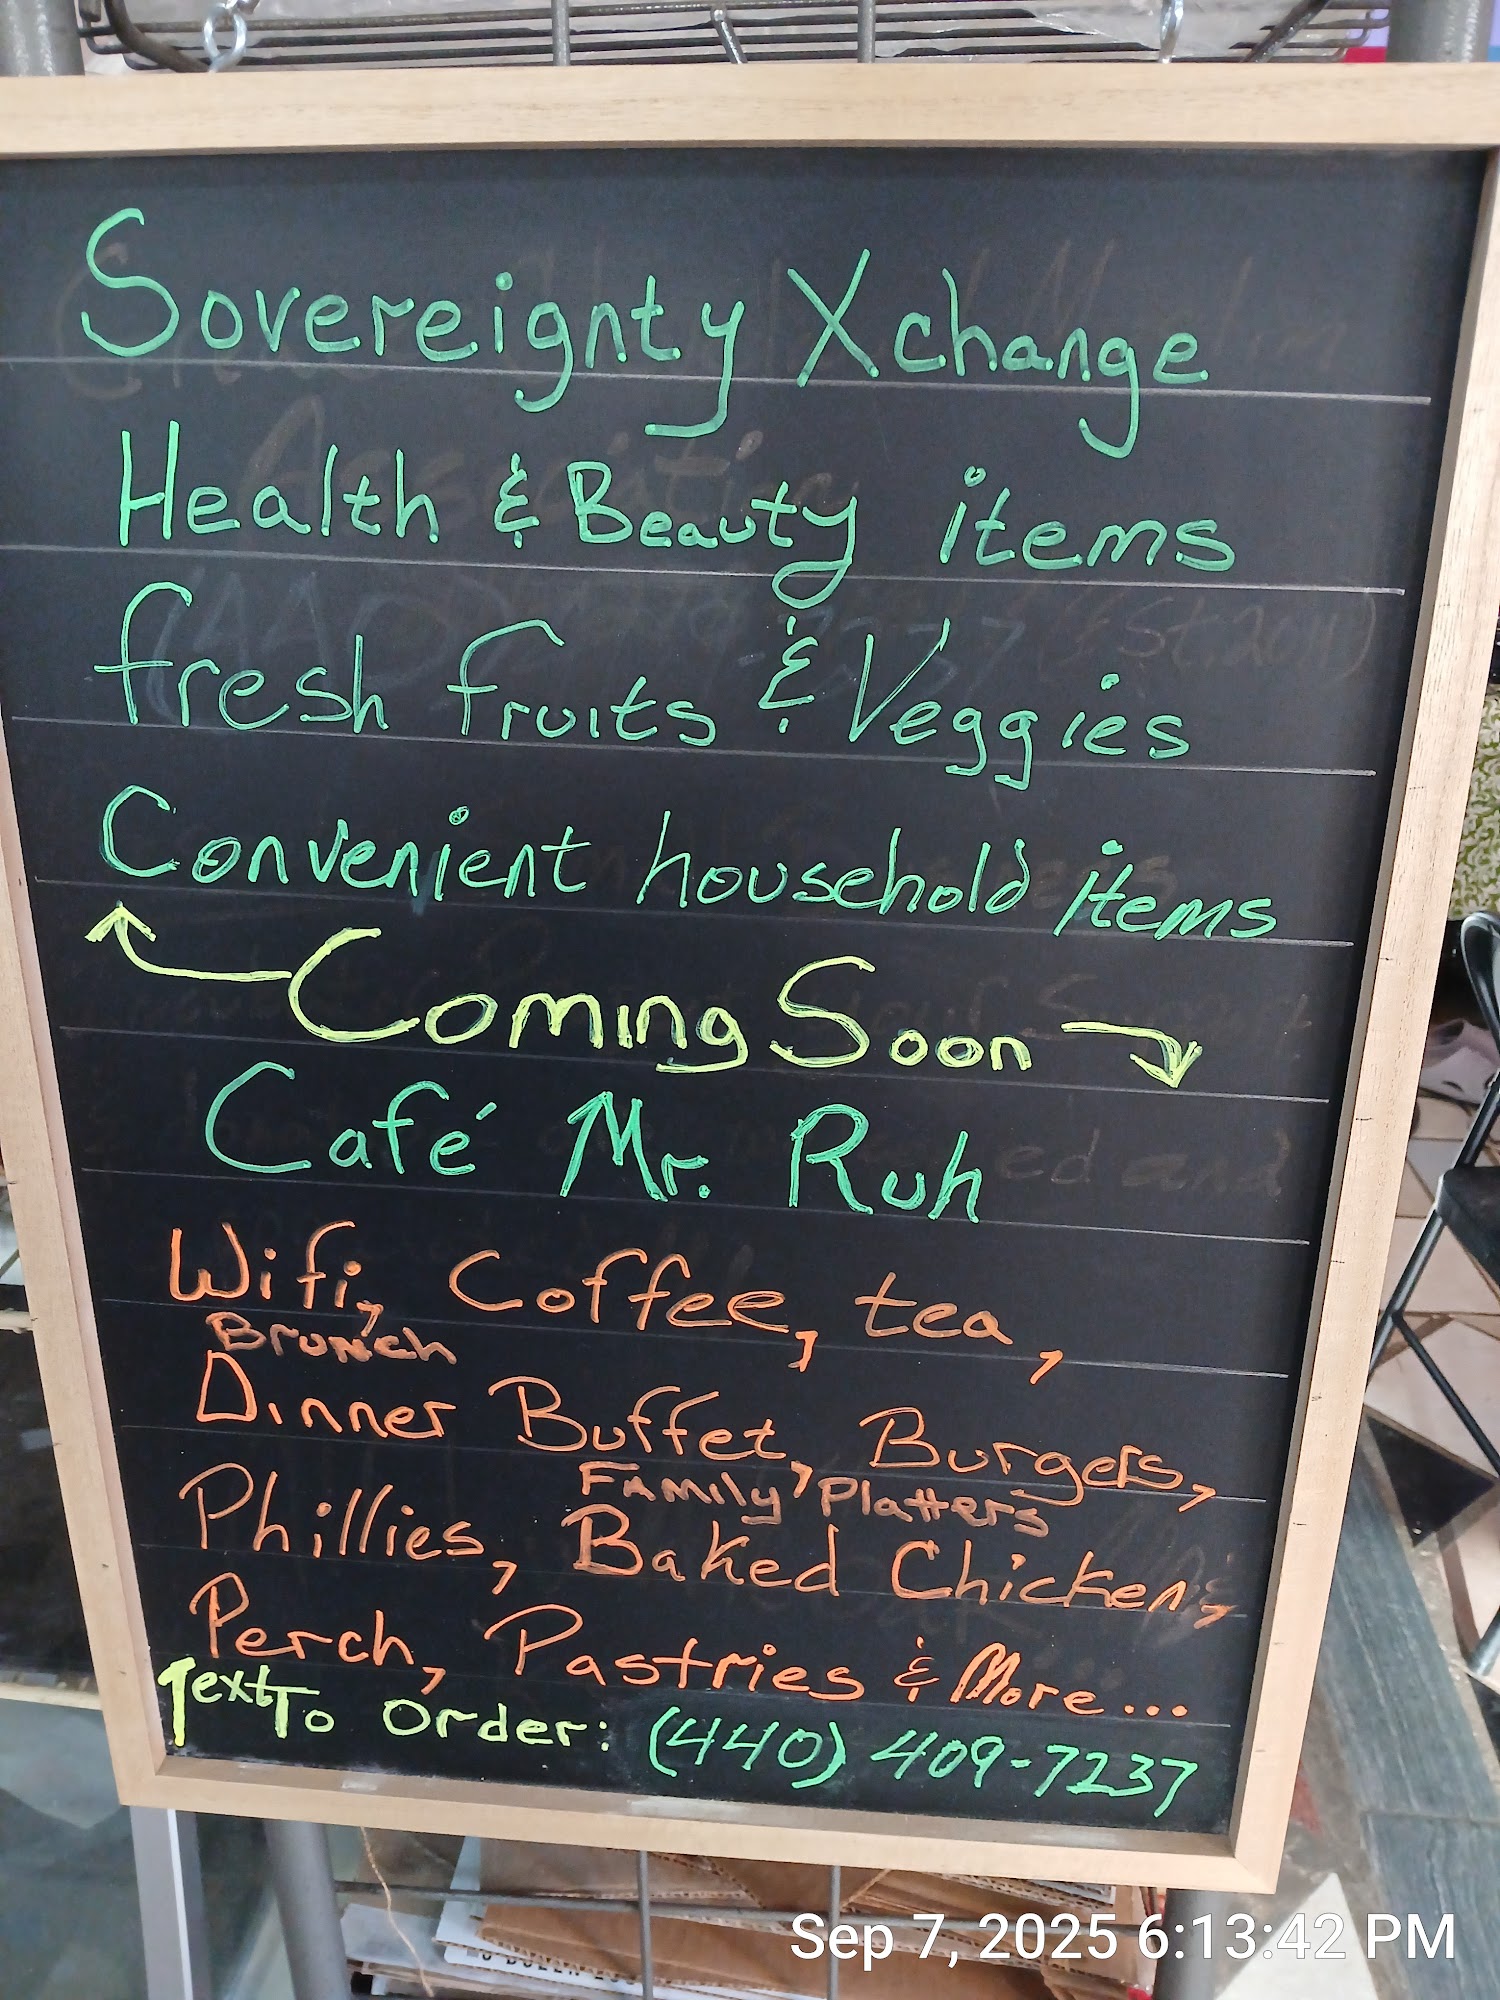 Sovereignty Xchange
Health & Beauty items
fresh fruits & Veggies
Convenient household items
Coming Soon
Café Mr. Ruh
Wifi, Coffee, tea,
Brunch
Dinner Buffet, Burgers,
Family Platters
Phillies, Baked Chicken,
Perch, Pastries & More...
Text To Order: (440) 409-7237
Sep 7, 2025 6:13:42 PM